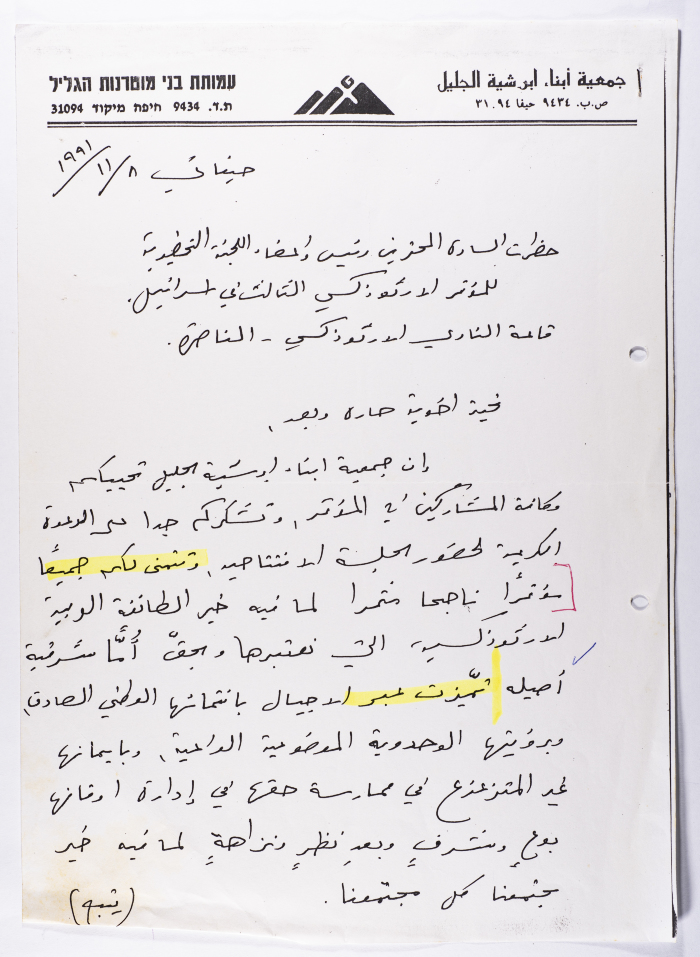 עמותת בני מוטרנות הגליל
ת.ד. 9434 חיפה מיקוד 31094
جمعية أبناء ابرشية الجليل
ص.ب. ٩٤٣٤ حيفا ٣١٠٩٤
حيفا في ٨/١١/١٩٩١
حضرات السادة المحترمين رئيس واعضاء اللجنة التحضيرية
للمؤتمر الارثوذكسي الثالث في اسرائيل.
قاعة النادي الارثوذكسي - الناصرة.
تحية اخوية حارة وبعد،
فان جمعية ابناء ابرشية الجليل تحييكم
وكافة المشاركين في المؤتمر، وتشكركم جدا على الدعوة
الكريمة لحضور الجلسة الافتتاحية، وتتمنى لكم جميعًا
مؤتمرًا ناجحا مثمرا لما فيه خير الطائفة العربية
الارثوذكسية التي نعتبرها وبحقّ أُمًّا مشرقية
أصيله تميّزت عبر الاجيال بانتمائها الوطني الصادق،
وبرؤيتها الوحدوية الموضوعية الواعية، وبايمانها
غير المتزعزع في ممارسة حقها في إدارة اوقافها
بوعيٍ وبشرفٍ وبعدِ نظرٍ ونزاهةٍ لما فيه خير
مجتمعنا كل مجتمعنا.
(يتبع)